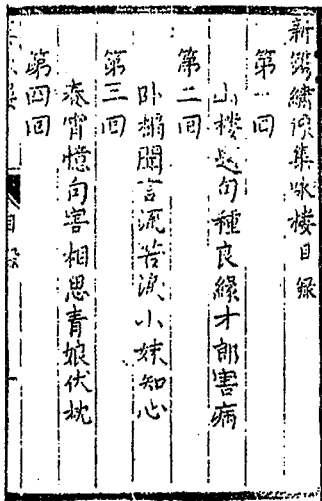 新鐫繡像集咏樓目錄
第一回
山樓題句種良緣才郎害病
第二回
卧榻聞言流苦淚小妹知心
第三回
春宵憶句害相思青娘伏枕
第四回
目錄
一